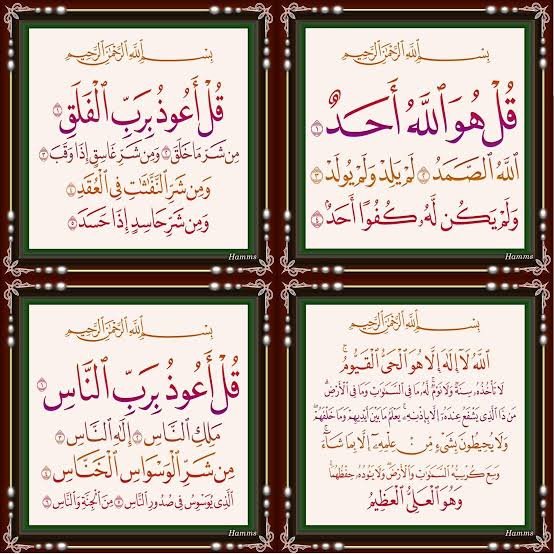 بِسْمِ ٱللَّهِ ٱلرَّحْمَٰنِ ٱلرَّحِيمِ
قُلْ هُوَ ٱللَّهُ أَحَدٌ ١
ٱللَّهُ ٱلصَّمَدُ ٢ لَمْ يَلِدْ وَلَمْ يُولَدْ ٣
وَلَمْ يَكُن لَّهُۥ كُفُوًا أَحَدٌۢ ٤
Hamms
بِسْمِ ٱللَّهِ ٱلرَّحْمَٰنِ ٱلرَّحِيمِ
قُلْ أَعُوذُ بِرَبِّ ٱلْفَلَقِ ١
مِن شَرِّ مَا خَلَقَ ٢ وَمِن شَرِّ غَاسِقٍ إِذَا وَقَبَ ٣
وَمِن شَرِّ ٱلنَّفَّٰثَٰتِ فِى ٱلْعُقَدِ ٤
وَمِن شَرِّ حَاسِدٍ إِذَا حَسَدَ ٥
Hamms
بِسْمِ ٱللَّهِ ٱلرَّحْمَٰنِ ٱلرَّحِيمِ
ٱللَّهُ لَآ إِلَٰهَ إِلَّا هُوَ ٱلْحَىُّ ٱلْقَيُّومُ
لَا تَأْخُذُهُۥ سِنَةٌ وَلَا نَوْمٌ لَّهُۥ مَا فِى ٱلسَّمَٰوَٰتِ وَمَا فِى ٱلْأَرْضِ
مَن ذَا ٱلَّذِى يَشْفَعُ عِندَهُۥٓ إِلَّا بِإِذْنِهِۦ يَعْلَمُ مَا بَيْنَ أَيْدِيهِمْ وَمَا خَلْفَهُمْ
وَلَا يُحِيطُونَ بِشَىْءٍ مِّنْ عِلْمِهِۦٓ إِلَّا بِمَا شَآءَ
وَسِعَ كُرْسِيُّهُ ٱلسَّمَٰوَٰتِ وَٱلْأَرْضَ وَلَا يَـُٔودُهُۥ حِفْظُهُمَا
وَهُوَ ٱلْعَلِىُّ ٱلْعَظِيمُ
Hamms
بِسْمِ ٱللَّهِ ٱلرَّحْمَٰنِ ٱلرَّحِيمِ
قُلْ أَعُوذُ بِرَبِّ ٱلنَّاسِ ١
مَلِكِ ٱلنَّاسِ ٢ إِلَٰهِ ٱلنَّاسِ ٣
مِن شَرِّ ٱلْوَسْوَاسِ ٱلْخَنَّاسِ ٤
ٱلَّذِى يُوَسْوِسُ فِى صُدُورِ ٱلنَّاسِ ٥ مِنَ ٱلْجِنَّةِ وَٱلنَّاسِ ٦
Hamms